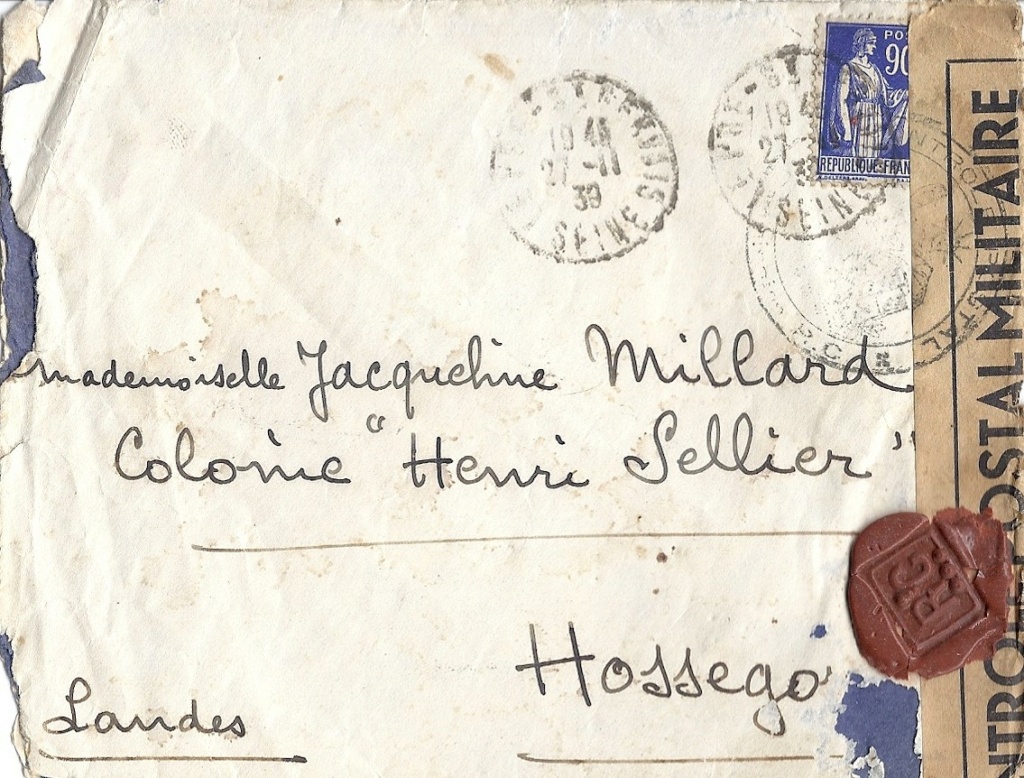 POS
90
REPUBLIQUE-FRAN
19 45
27-11
39
SEINE
19 4
27
SEINE
mademoiselle Jacqueline Millard
Colonie "Henri Sellier"
Hossego
Landes
NTROLE POSTAL MILITAIRE
R.C.